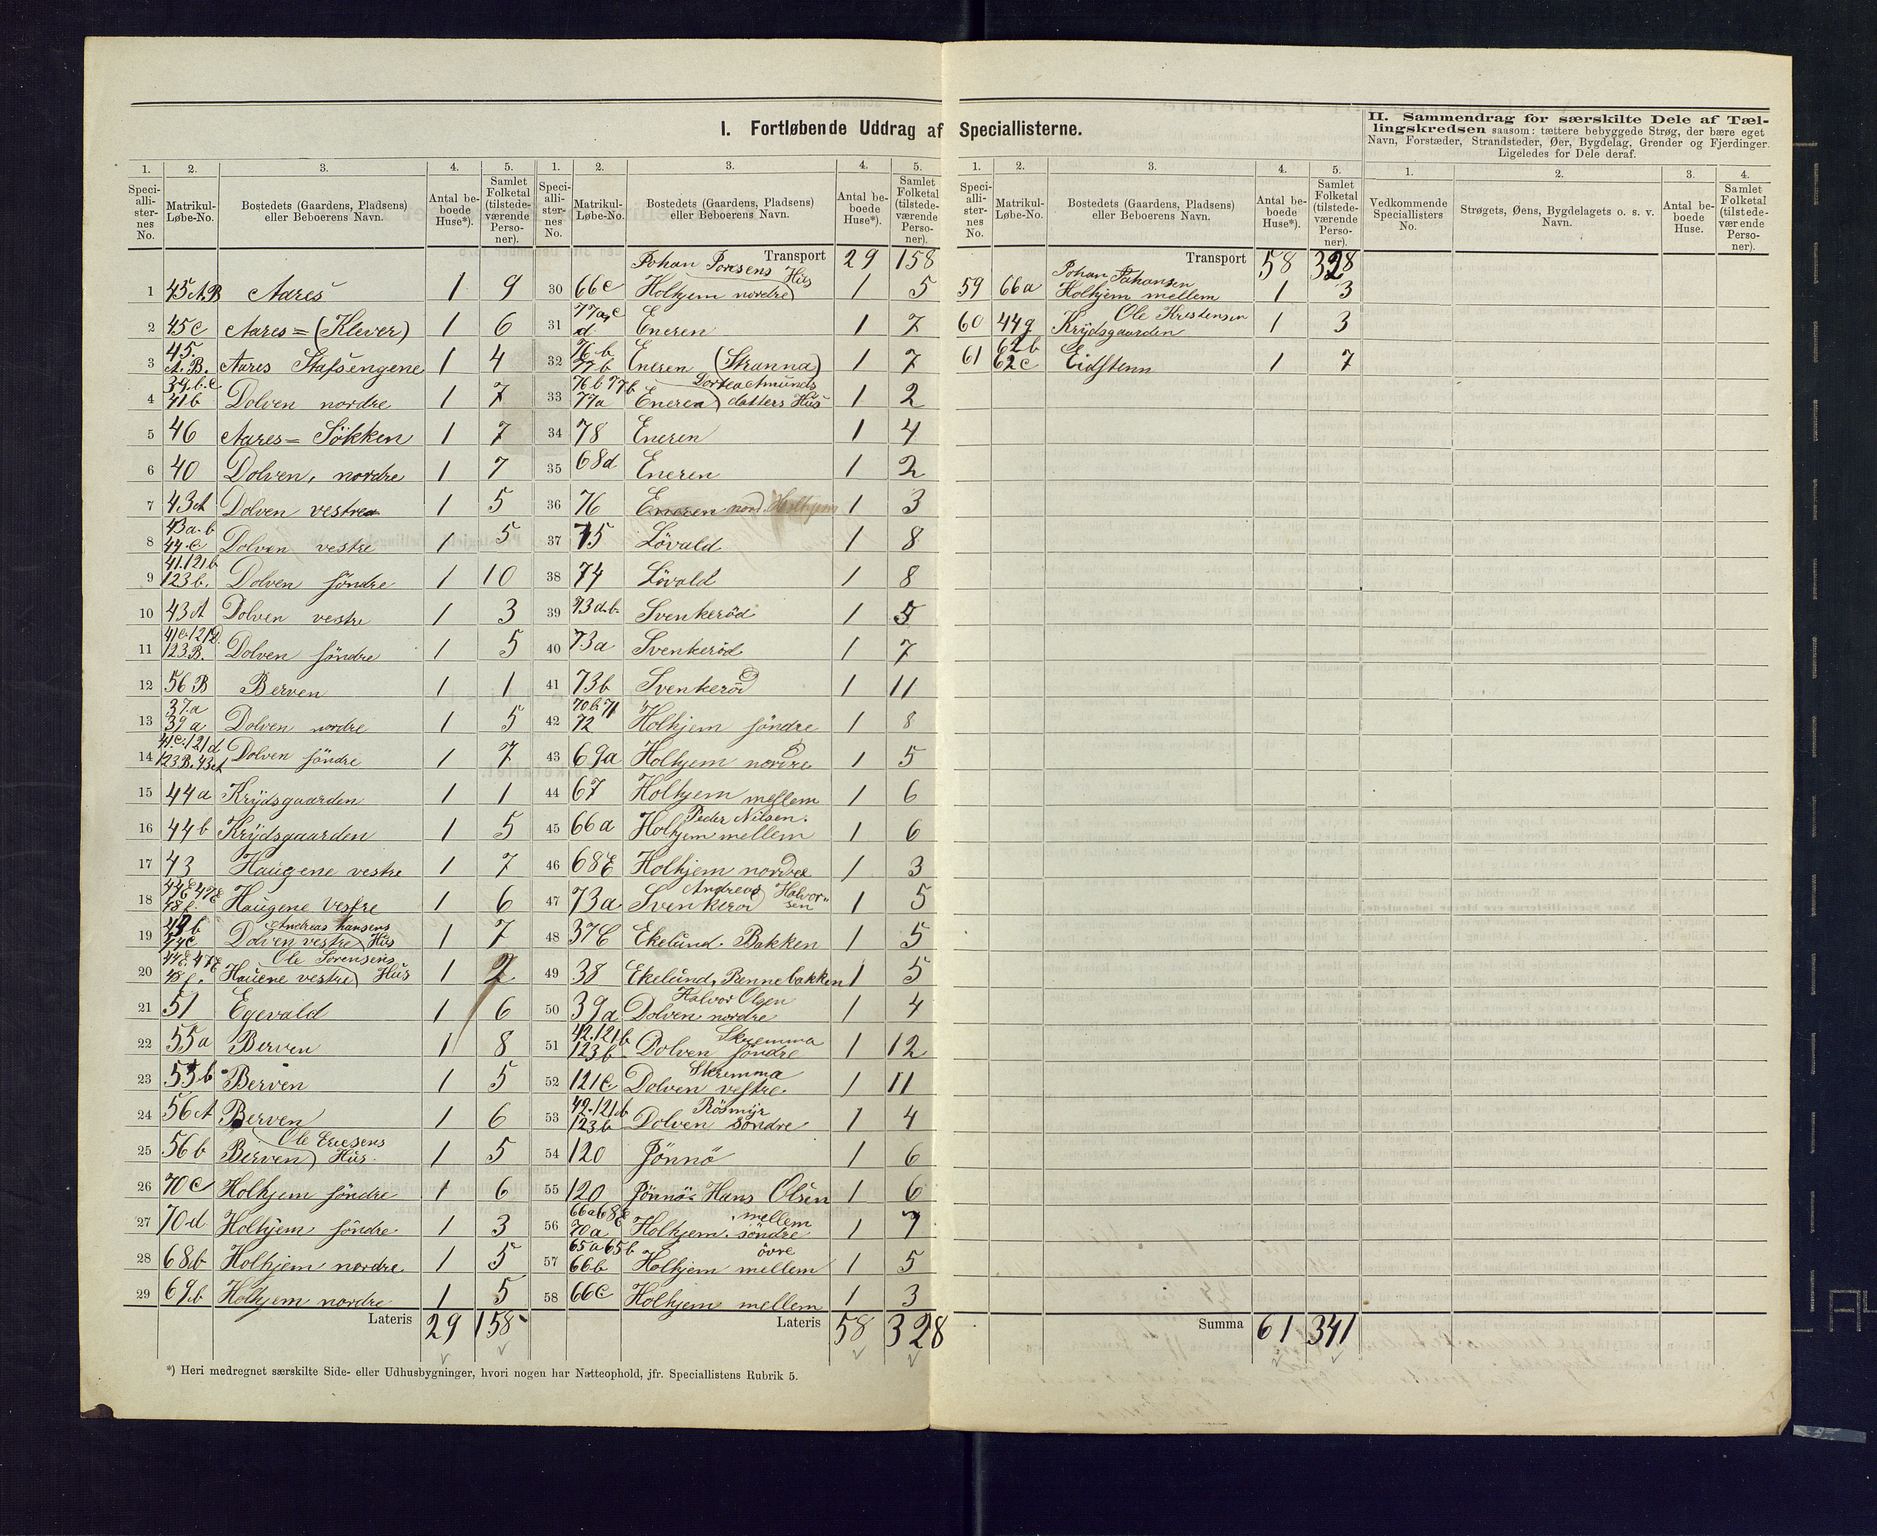 I. Fortløbende Uddrag af Speciallisterne.
II. Sammendrag for særskilte Dele af Tællingskredsen saasom: tættere bebyggede Strøg, der bære eget Navn, Forstæder, Strandsteder, Øer, Bygdelag, Grender og Fjerdinger. Ligeledes for Dele deraf.
1. 2. 3. 4. 5. 1. 2. 3. 4. 5. 1. 2. 3. 4. 5. 1. 2. 3. 4.
Speciallisternes No. Matrikul-Løbe-No. Bostedets (Gaardens, Pladsens) eller Beboerens Navn. Antal beboede Huse*). Samlet Folketal (tilstedeværende Personer).
Speciallisternes No. Matrikul-Løbe-No. Bostedets (Gaardens, Pladsens) eller Beboerens Navn. Antal beboede Huse*). Samlet Folketal (tilstedeværende Personer).
Speciallisternes No. Matrikul-Løbe-No. Bostedets (Gaardens, Pladsens) eller Beboerens Navn. Antal beboede Huse*). Samlet Folketal (tilstedeværende Personer).
Vedkommende Speciallisters No. Strøgets, Øens, Bygdelagets o. s. v. Navn. Antal beboede Huse. Samlet Folketal (tilstedeværende Personer).
1 45 A.B Aares 1 9
2 45c Aares = (Klever) 1 6
3 45. A.B. Aares Stafsengene 1 4
4 39.b.c 41b Dolven nordre 1 7
5 46 Aares = Søkken 1 7
6 40 Dolven, nordre 1 7
7 43A Dolven vestre 1 5
8 43a-b 44-c Dolven vestre 1 5
9 41.121b 123b. Dolven søndre 1 10
10 43A Dolven vestre 1 3
11 41c.121d. 123.B. Dolven søndre 1 5
12 56B Berven 1 1
13 37.a 39a Dolven nordre 1 5
14 41.c.121d 123B.43A Dolven søndre 1 7
15 44a Krydsgaarden 1 1
16 44b Krydsgaarden 1 5
17 43 Haugene vestre 1 7
18 44E 47E 48f. Haugene vestre 1 6
19 43b 44c Dolven vestre) Andreas Hansens Hus 1 7
20 44E.47E 48f. Hauene vestre) Ole Sorensens Hus 1 2
21 51 Egevald 1 6
22 55a Berven 1 8
23 55b Berven 1 5
24 56A Berven 1 6
25 56b Berven) Ole Ericsens Hus. 1 5
26 70c Holhjem søndre 1 6
27 70d Holhjem søndre 1 3
28 68b Holhjem nordre 1 5
29 69b Holhjem nordre 1 5
Lateris 29 158
Transport 29 158
30 66c Johan Hus Holhjem nordre) 1 5
31 77a c d Eneren 1 7
32 76-b 77b Eneren (Stranna) 1 7
33 76b 77b 77a Eneren) Dortea Amunds datters Hus 1 2
34 78 Eneren 1 4
35 68d Eneren 1 2
36 76 Eneren nord. Holhjem 1 3
37 75 Løvald 1 8
38 74 Løvald 1 8
39 73d.b. Svenkerød 1 5
40 73a Svenkerød 1 7
41 73b Svenkerød 1 11
42 70b.71 72 Holhjem søndre 1 8
43 69a Holhjem nordre 1 5
44 67 Holhjem mellem 1 6
45 66a Peder Nilsen. Holhjem mellem 1 6
46 68E Holhjem nordre 1 3
47 73a Andreas Halvorsen Svenkerød 1 5
48 37C Ekelund. Bakken 1 5
49 38 Ekelund, Rennebakken 1 5
50 39a Halvor Olsen Dolven nordre 1 4
51 42.121b 123b Skremma Dolven søndre 1 12
52 121C Skremma Dolven vestre. 1 11
53 42.121b 123b Røsmyr Dolven søndre 1 4
54 120 Jønnø 1 6
55 120 Jønnø = Hans Olsen 1 6
56 66a68E 70a mellem Holhjem. søndre 1 7
57 65a65b 66b øvre Holhjem mellem 1 5
58 66c Holhjem mellem 1 3
Lateris 58 328
Transport 58 328
59 66a Johan Johansen Holhjem mellem 1 3
60 44g Ole Kristensen Krydsgaarden 1 3
61 62b 62c Eidstenn 1 7
Summa 61 341
*) Heri medregnet særskilte Side- eller Udhusbygninger, hvori nogen har Natteophold, jfr. Speciallistens Rubrik 5.